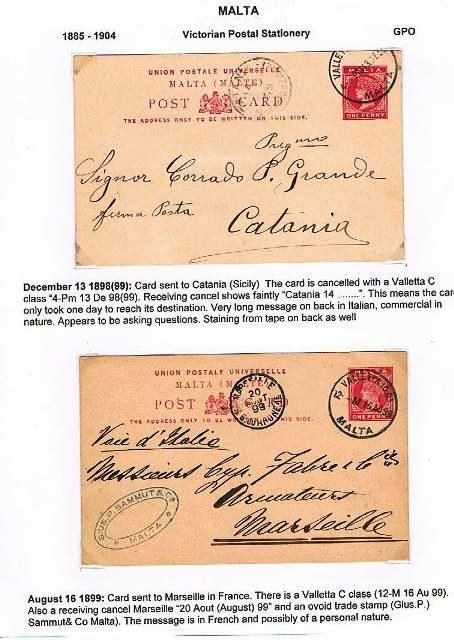 MALTA
1885 - 1904 Victorian Postal Stationery GPO
UNION POSTALE UNIVERSELLE
MALTA (MALTE)
POST CARD
THE ADDRESS ONLY TO BE WRITTEN ON THIS SIDE.
MALTA
ONE PENNY
VALLETTA
MALTA
Signor Corrado P. Grande
ferma Posta
Catania
December 13 1898(99): Card sent to Catania (Sicily) The card is cancelled with a Valletta C
class "4-Pm 13 De 98(99). Receiving cancel shows faintly "Catania 14 ........". This means the card
only took one day to reach its destination. Very long message on back in Italian, commercial in
nature. Appears to be asking questions. Staining from tape on back as well
UNION POSTALE UNIVERSELLE
MALTA (MALTE)
POST
THE ADDRESS ONLY TO BE WRITTEN ON THIS SIDE.
MARSEILLE
20
99
ONE PENNY
VALLETTA
MALTA
Voie d'Italie
Messieurs Cyp. Fabre & Cie
Armateurs
Marseille
GIUS. P. SAMMUT & Co.
MALTA
August 16 1899: Card sent to Marseille in France. There is a Valletta C class (12-M 16 Au 99).
Also a receiving cancel Marseille "20 Aout (August) 99" and an ovoid trade stamp (Gius.P.)
Sammut& Co Malta). The message is in French and possibly of a personal nature.